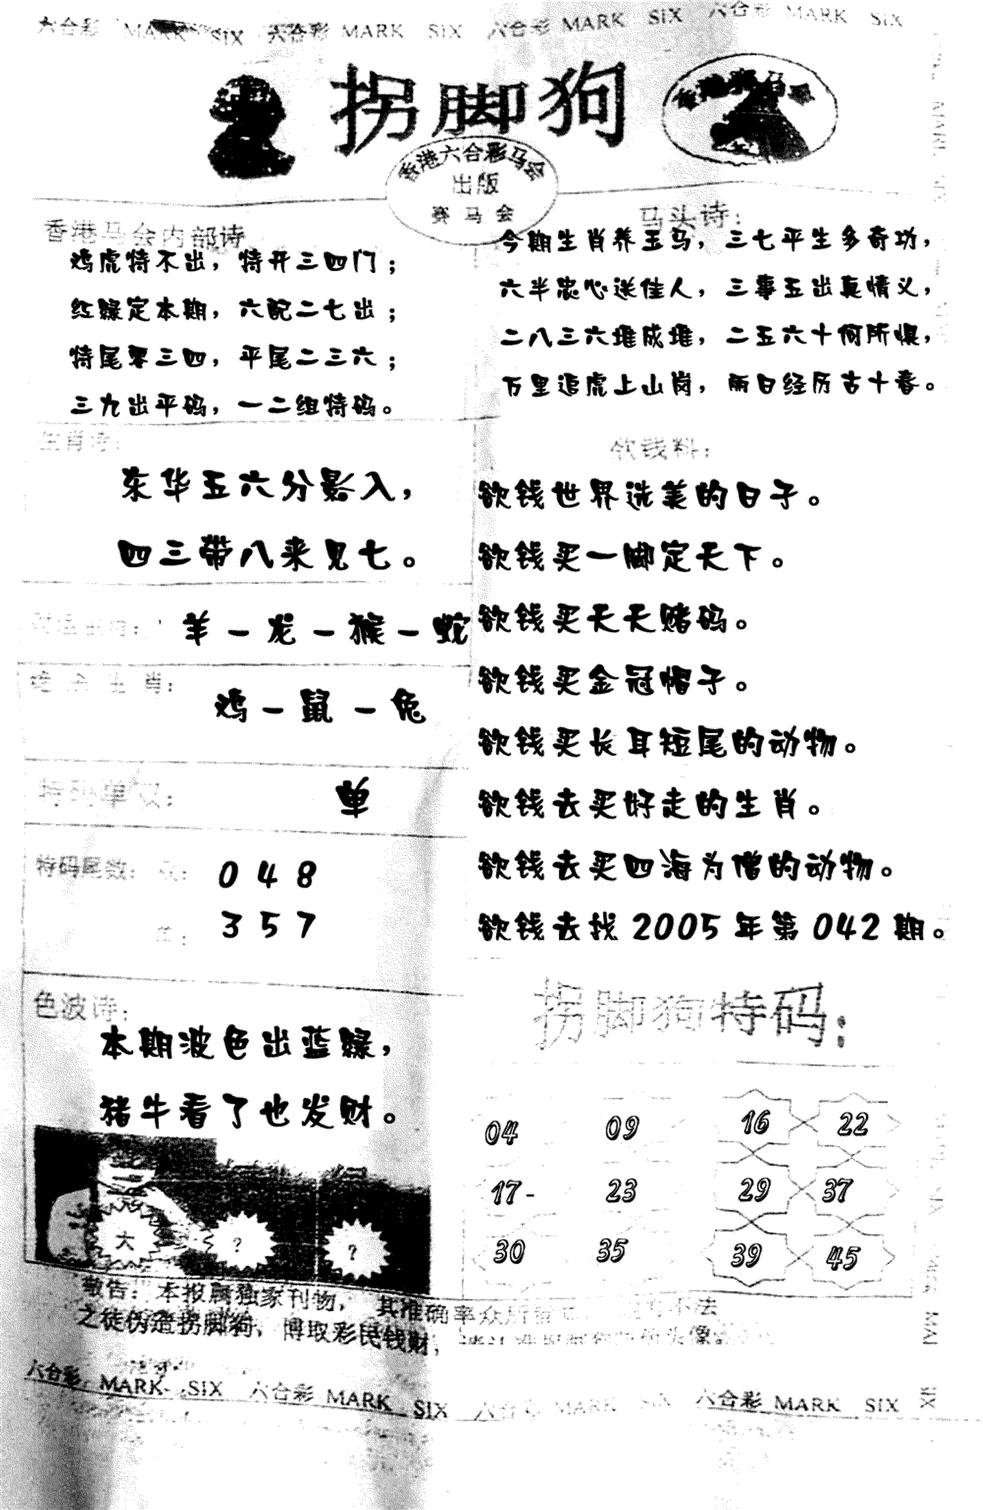 六合彩 MARK SIX 六合彩 MARK SIX 六合彩 MARK SIX 六合彩 MARK SIX
拐脚狗
香港赛马会
香港六合彩马会
出版
赛马会
香港马会内部诗
鸡虎特不出，特开三四门；
红绿定本期，六配二七出；
特尾零三四，平尾二三六；
三九出平码，一二组特码。
马头诗：
今期生肖养玉马，三七平生多奇功，
六半忠心送佳人，三事五出真情义，
二八三六堆成堆，二五六十何所惧，
万里追虎上山岗，雨日经历古十春。
生肖诗：
东华五六分影入，
四三带八来见七。
羊－龙－猴－蛇
绝杀生肖：
鸡－鼠－兔
特码单双：
单
特码尾数：双：
0 4 8
单：
3 5 7
色波诗：
本期波色出蓝绿，
猪牛看了也发财。
大 ？ ？
欲钱料：
欲钱世界选美的日子。
欲钱买一脚定天下。
欲钱买天天赌码。
欲钱买金冠帽子。
欲钱买长耳短尾的动物。
欲钱去买好走的生肖。
欲钱去买四海为僧的动物。
欲钱去找2005年第042期。
拐脚狗特码：
04 09 16 22
17- 23 29 37
30 35 39 45
敬告：本报属独家刊物，其准确率众所
不法
之徒伪造拐脚狗，博取彩民钱财，
头像
六合彩 MARK SIX 六合彩 MARK SIX 六合彩 MARK SIX 六合彩 MARK SIX